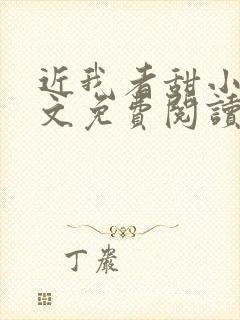 近我者甜小
文免費閱讀
丁嚴